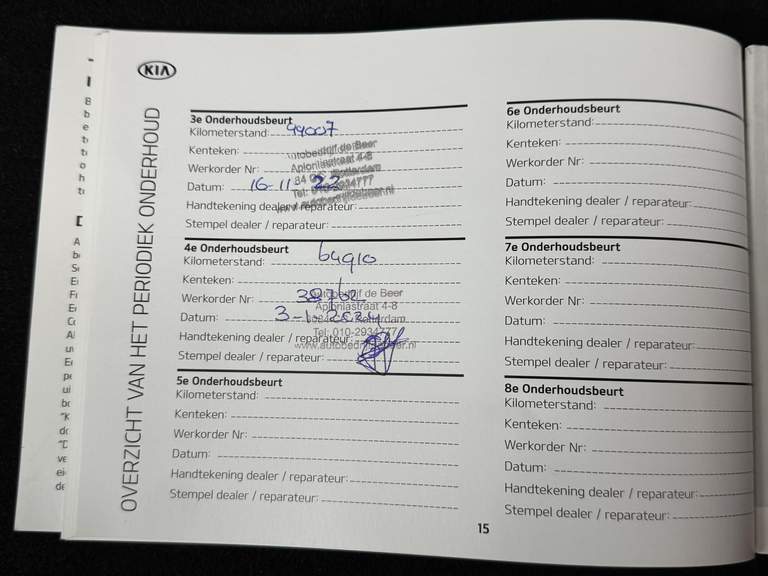 KIA
OVERZICHT VAN HET PERIODIEK ONDERHOUD
3e Onderhoudsbeurt
Kilometerstand: 44007
Kenteken:
Werkorder Nr:
Datum: 16-11-22
Handtekening dealer / reparateur:
Stempel dealer / reparateur:
Autobedrijf de Beer
Aploniastraat 4-8
Rotterdam
Tel: 010-2934777
4e Onderhoudsbeurt
Kilometerstand:
Kenteken:
Werkorder Nr:
Datum: 3-1-2024
Handtekening dealer / reparateur:
Stempel dealer / reparateur:
Autobedrijf de Beer
Aploniastraat 4-8
Rotterdam
Tel: 010-2934777
5e Onderhoudsbeurt
Kilometerstand:
Kenteken:
Werkorder Nr:
Datum:
Handtekening dealer / reparateur:
Stempel dealer / reparateur:
6e Onderhoudsbeurt
Kilometerstand:
Kenteken:
Werkorder Nr:
Datum:
Handtekening dealer / reparateur:
Stempel dealer / reparateur:
7e Onderhoudsbeurt
Kilometerstand:
Kenteken:
Werkorder Nr:
Datum:
Handtekening dealer / reparateur:
Stempel dealer / reparateur:
8e Onderhoudsbeurt
Kilometerstand:
Kenteken:
Werkorder Nr:
Datum:
Handtekening dealer / reparateur:
Stempel dealer / reparateur:
15